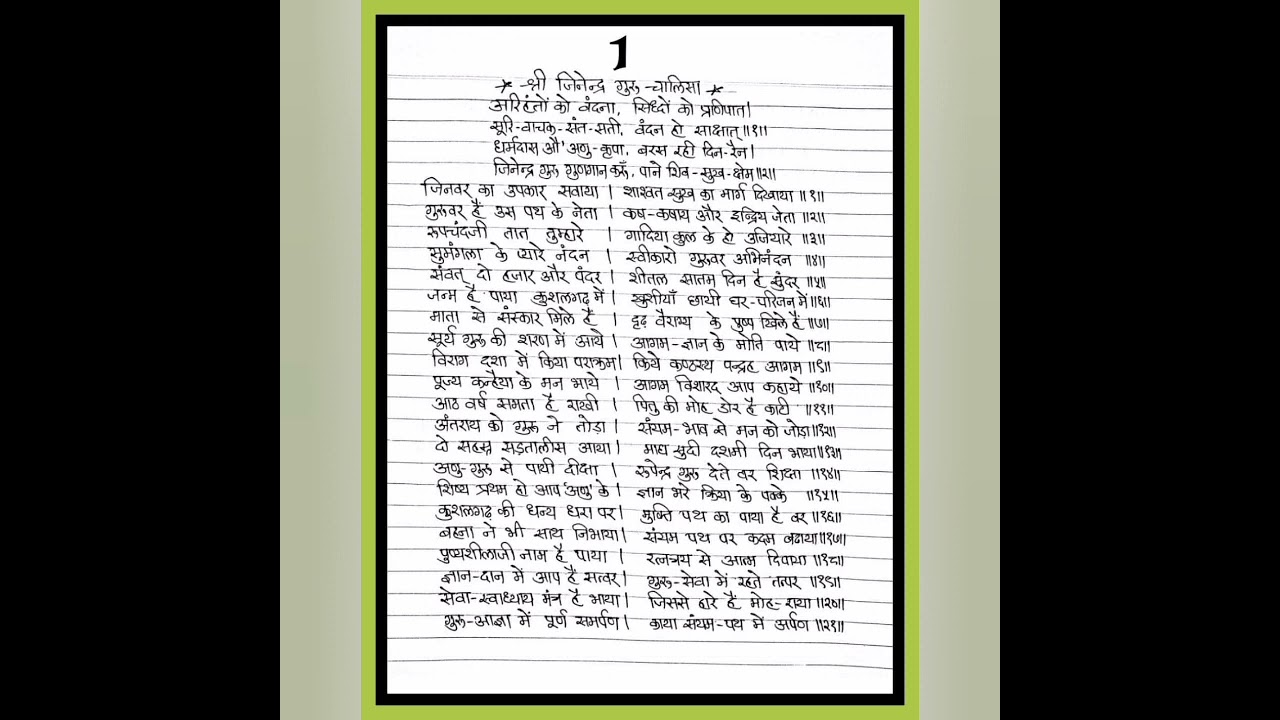 1
* श्री जिनेन्द्र गुरु-चालिसा *
अरिहंतों को वंदना, सिध्दों को प्रणिपात।
सूरि-वाचक-संत-सती, वंदन हो साक्षात् ॥१॥
धर्मदास औ' अणु-कृपा, बरस रही दिन-रैन।
जिनेन्द्र गुरु गुणगान करूँ, पाने शिव-सुख-क्षेम ॥२॥
जिनवर का उपकार सवाया । शाश्वत सुख का मार्ग दिखाया ॥१॥
गुरुवर हैं उस पथ के नेता । कष-कषाय और इन्द्रिय जेता ॥२॥
रुपचंदजी तात तुम्हारे । गादिया कुल के हो उजियारे ॥३॥
सुमंगला के प्यारे नंदन । स्वीकारो गुरुवर अभिनंदन ॥४॥
संवत् दो हजार और पंदर् । शीतल सातम दिन है सुंदर् ॥५॥
जन्म है पाया कुशलगढ़ में । खुशीयाँ छायी घर-परिजन में ॥६॥
माता से संस्कार मिले हैं । दृढ़ वैराग्य के पुष्प खिले हैं ॥७॥
सूर्य गुरु की शरण में आये । आगम-ज्ञान के मोति पाये ॥८॥
विराग दशा में किया पराक्रम । किये कण्ठस्थ पन्द्रह आगम ॥९॥
पूज्य कन्हैया के मन भाये । आगम विशारद आप कहाये ॥१०॥
आठ वर्ष समता है राखी । पितु की मोह डोर है काटी ॥११॥
अंतराय को गुरु ने तोड़ा । संयम-भाव से मन को जोड़ा ॥१२॥
दो सहस्र सड़तालीस आया । माघ सुदी दशमी दिन भाया ॥१३॥
अणु-गुरु से पायी दीक्षा । रुपेन्द्र गुरु देते वर शिक्षा ॥१४॥
शिष्य प्रथम हो आप 'अणु' के । ज्ञान भरे क्रिया के पक्के ॥१५॥
कुशलगढ़ की धन्य धरा पर । मुक्ति पथ का पाया है वर ॥१६॥
बहना ने भी साथ निभाया । संयम पथ पर कदम बढाया ॥१७॥
पुष्यशीलाजी नाम है पाया । रत्नत्रय से आत्म दिपाया ॥१८॥
ज्ञान-दान में आप हैं सत्वर् । गुरु-सेवा में रहते तत्पर ॥१९॥
सेवा-स्वाध्याय मंत्र है भाया । जिससे हारे हैं मोह-राया ॥२०॥
गुरु-आज्ञा में पूर्ण समर्पण । काया संयम-पथ में अर्पण ॥२१॥